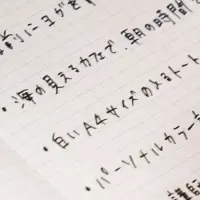 前にヨガを
・海の見えるカフェで、朝の時間
・白いA4サイズの入るトート
・パーソナルカラー